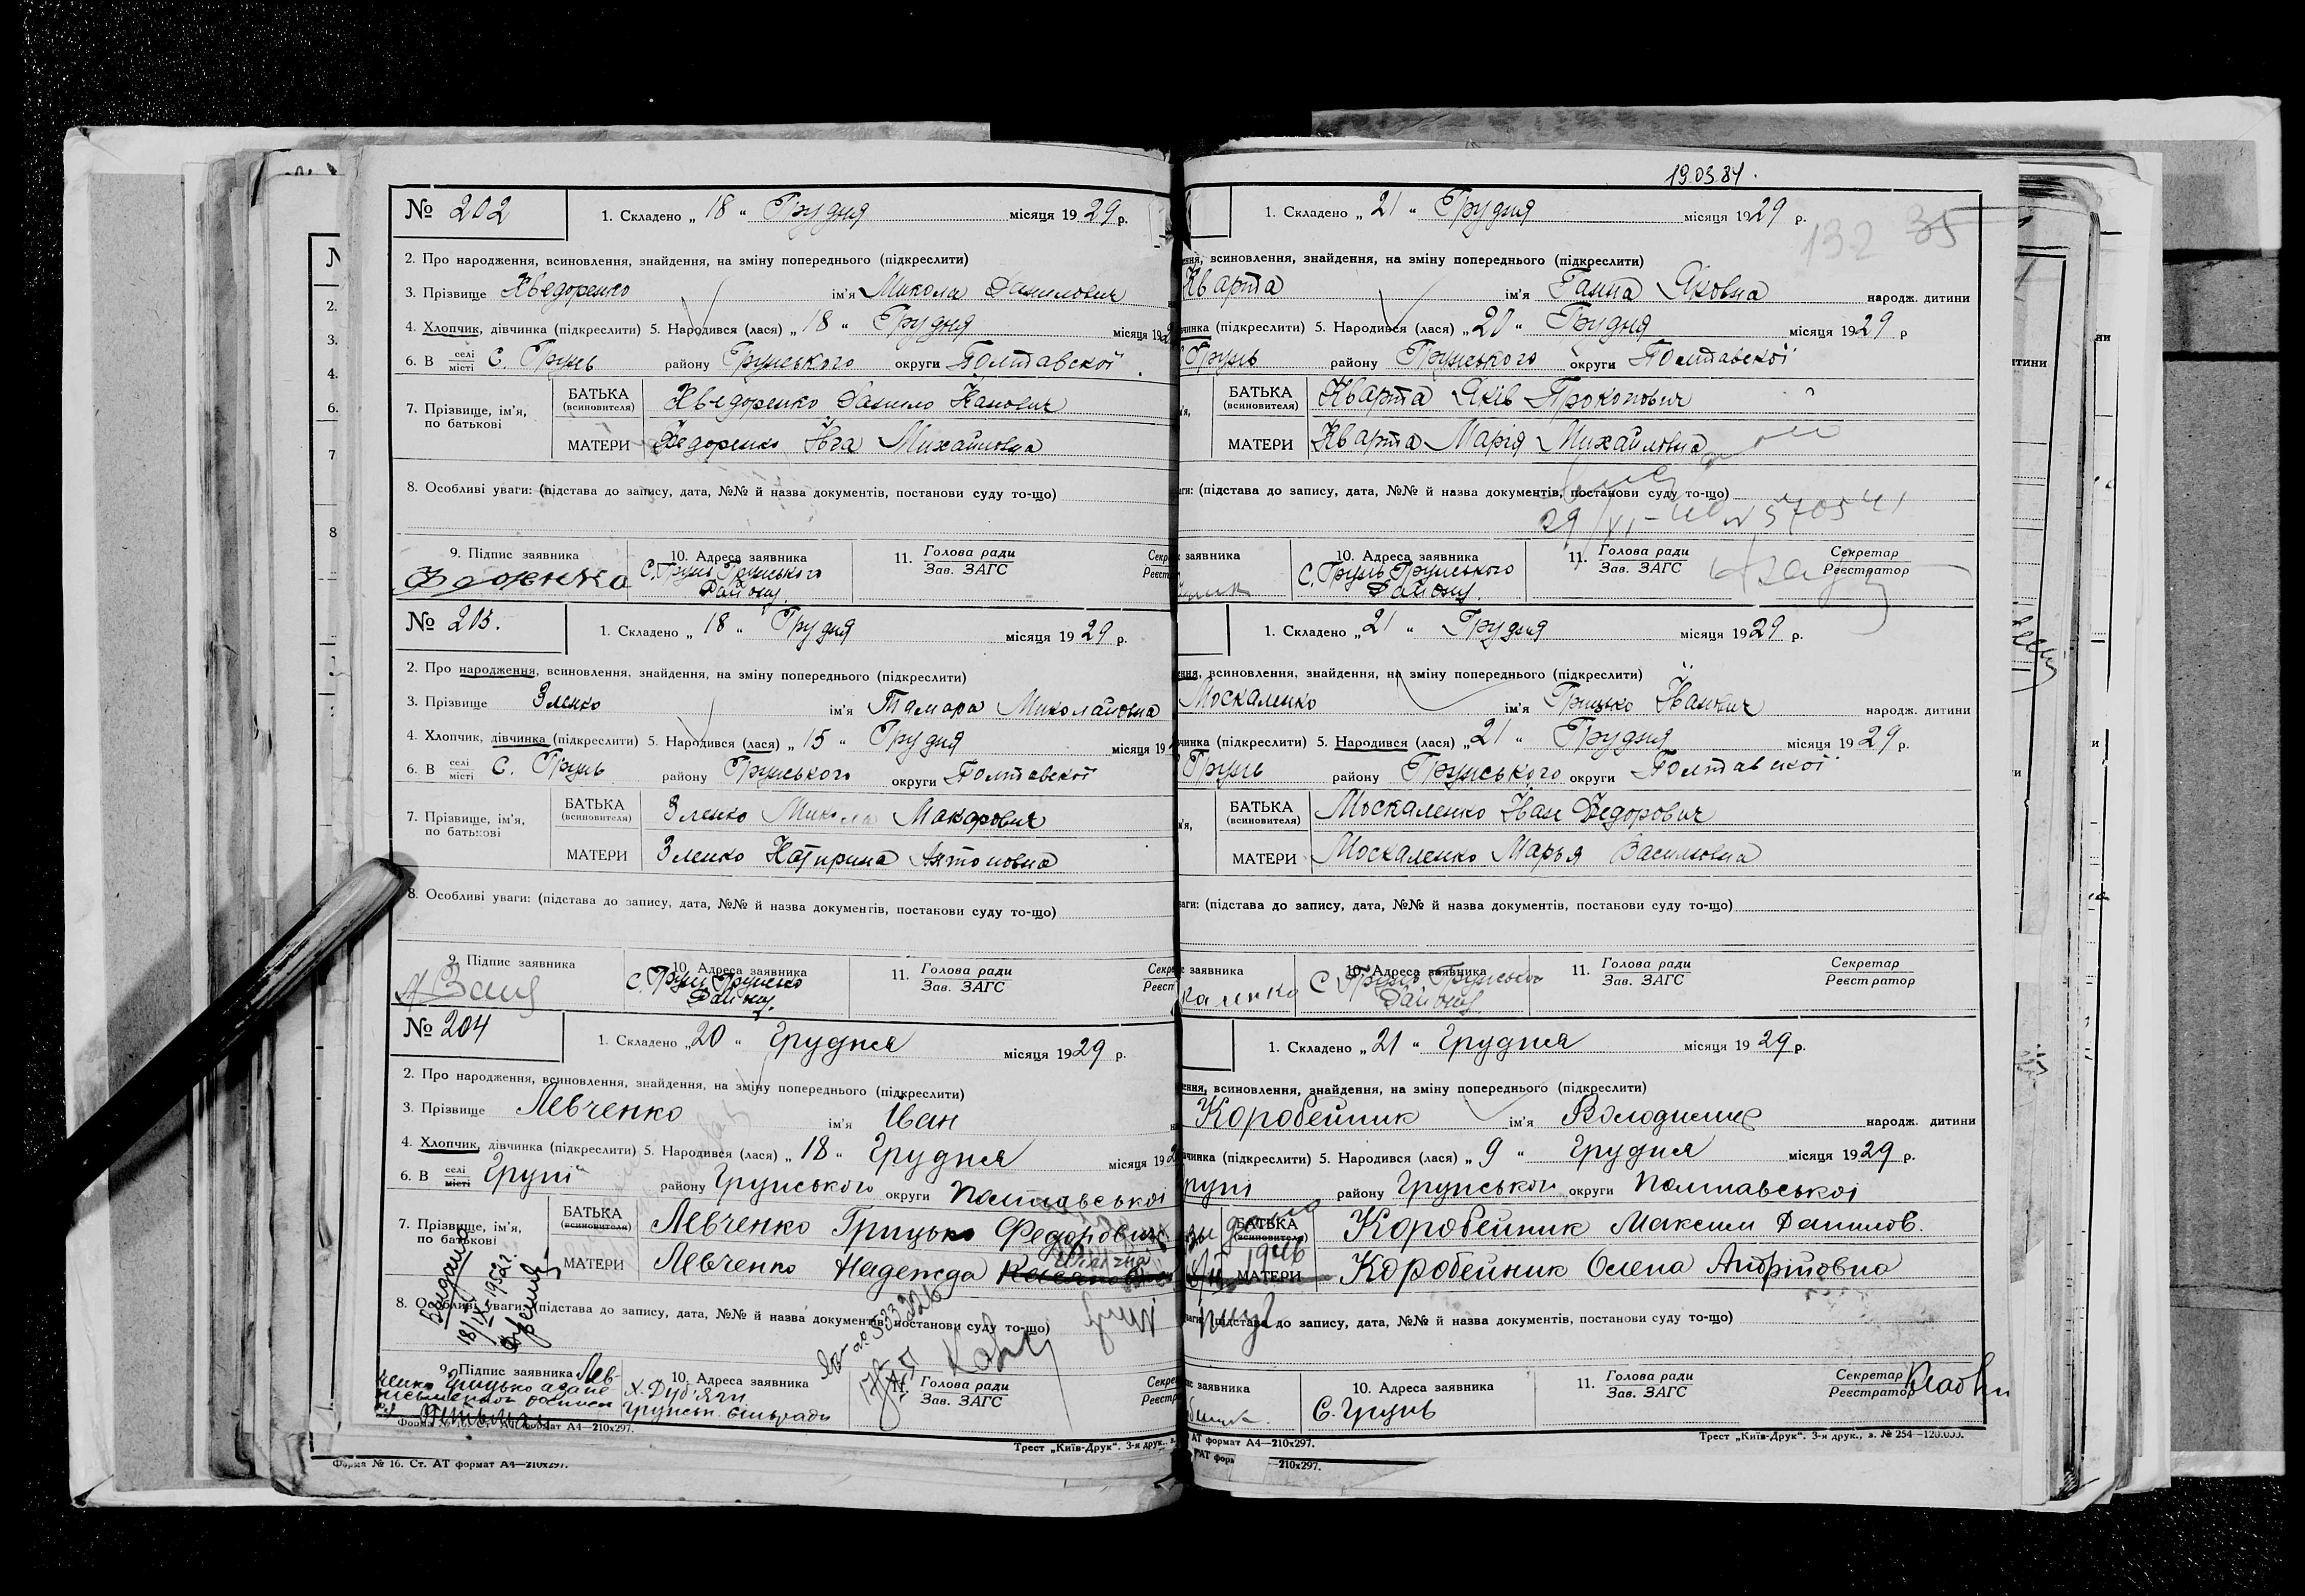 № 202
1. Складено „ 18 “ Грудня місяця 1929 р.
2. Про народження, всиновлення, знайдення, на зміну попереднього (підкреслити)
3. Прізвище Хведоренко ім'я Микола Данилович
4. Хлопчик, дівчинка (підкреслити) 5. Народився (лася) „ 18 “ Грудня місяця 192
6. В селі місті С. Грунь району Грунського округи Полтавскої
7. Прізвище, ім'я, по батькові
БАТЬКА (всиновителя) Хведоренко Данило Іванович
МАТЕРИ Федоренко Ївга Михайловна
8. Особливі уваги: (підстава до запису, дата, №№ й назва документів, постанови суду то-що)
9. Підпис заявника
10. Адреса заявника С. Грунь Грунського Району.
11. Голова ради Зав. ЗАГС
№ 203.
1. Складено „ 18 “ Грудня місяця 1929 р.
2. Про народження, всиновлення, знайдення, на зміну попереднього (підкреслити)
3. Прізвище Зленко ім'я Тамара Миколайовна
4. Хлопчик, дівчинка (підкреслити) 5. Народився (лася) „ 15 “ Грудня місяця 19
6. В селі місті С. Грунь району Грунського округи Полтавскої
7. Прізвище, ім'я, по батькові
БАТЬКА (всиновителя) Зленко Микола Макарович
МАТЕРИ Зленко Катирина Антоновна
8. Особливі уваги: (підстава до запису, дата, №№ й назва документів, постанови суду то-що)
9. Підпис заявника
10. Адреса заявника С. Грунь Грунсько Району.
11. Голова ради Зав. ЗАГС
№ 204
1. Складено „ 20 “ Грудня місяця 1929 р.
2. Про народження, всиновлення, знайдення, на зміну попереднього (підкреслити)
3. Прізвище Левченко ім'я Іван
4. Хлопчик, дівчинка (підкреслити) 5. Народився (лася) „ 18 “ Грудня місяця 192
6. В селі місті Груні району Грунського округи Полтавської
7. Прізвище, ім'я, по батькові
БАТЬКА (всиновителя) Левченко Грицько Федорович
МАТЕРИ Левченко Надежда
8. Особливі уваги: (підстава до запису, дата, №№ й назва документів, постанови суду то-що)
Видано 18/IX 1952 г.
9. Підпис заявника Лев-
ченко Грицько
10. Адреса заявника Х. Дуб'яги Грунськ. сільради
11. Голова ради Зав. ЗАГС
Трест „Київ-Друк“. 3-я друк.,
Форма № 16. Ст. АТ формат А4—210x297.
19.03.84.
1. Складено „ 21 “ Грудня місяця 1929 р.
132 35
всиновлення, знайдення, на зміну попереднього (підкреслити)
Кварта ім'я Ганна Яковна народж. дитини
(підкреслити) 5. Народився (лася) „ 20 “ Грудня місяця 1929 р
Грунь району Грунського округи Полтавскої
БАТЬКА (всиновителя) Кварта Яків Прокопович
МАТЕРИ Кварта Марія Михайловна
(підстава до запису, дата, №№ й назва документів, постанови суду то-що)
заявника
10. Адреса заявника С. Грунь Грунського Району.
11. Голова ради Зав. ЗАГС
Секретар Реєстратор
1. Складено „ 21 “ Грудня місяця 1929 р.
всиновлення, знайдення, на зміну попереднього (підкреслити)
Москаленко ім'я Грицько Іванович народж. дитини
(підкреслити) 5. Народився (лася) „ 21 “ Грудня місяця 1929 р.
Грунь району Грунського округи Полтавської
БАТЬКА (всиновителя) Москаленко Іван Федорович
МАТЕРИ Москаленко Марья Василовна
(підстава до запису, дата, №№ й назва документів, постанови суду то-що)
заявника каленко
10. Адреса заявника С. Грунь Грунського Району.
11. Голова ради Зав. ЗАГС
Секретар Реєстратор
1. Складено „ 21 “ Грудня місяця 1929 р.
всиновлення, знайдення, на зміну попереднього (підкреслити)
Коробейник ім'я Володимир народж. дитини
(підкреслити) 5. Народився (лася) „ 9 “ Грудня місяця 1929 р.
району Грунського округи Полтавської
БАТЬКА (всиновителя) Коробейник Максим Данилов.
МАТЕРИ Коробейник Олена Андріовна
(підстава до запису, дата, №№ й назва документів, постанови суду то-що)
заявника
10. Адреса заявника С. Грунь
11. Голова ради Зав. ЗАГС
Секретар Реєстратор
АТ формат А4—210x297.
Трест „Київ-Друк“. 3-я друк., з. № 254—120.000.
210x297.